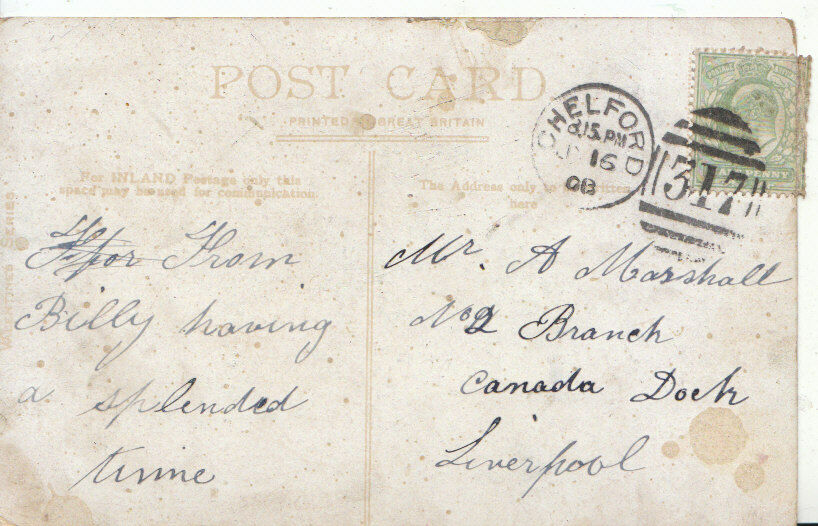 POST CARD
PRINTED GREAT BRITAIN
For INLAND Postage only this
space may be used for communication.
The Address only to be written
here
SERIES
CHELFORD
8.15 PM
16
08
317
From
Billy having
a splended
time
Mr. A Marshall
No 2 Branch
Canada Dock
Liverpool